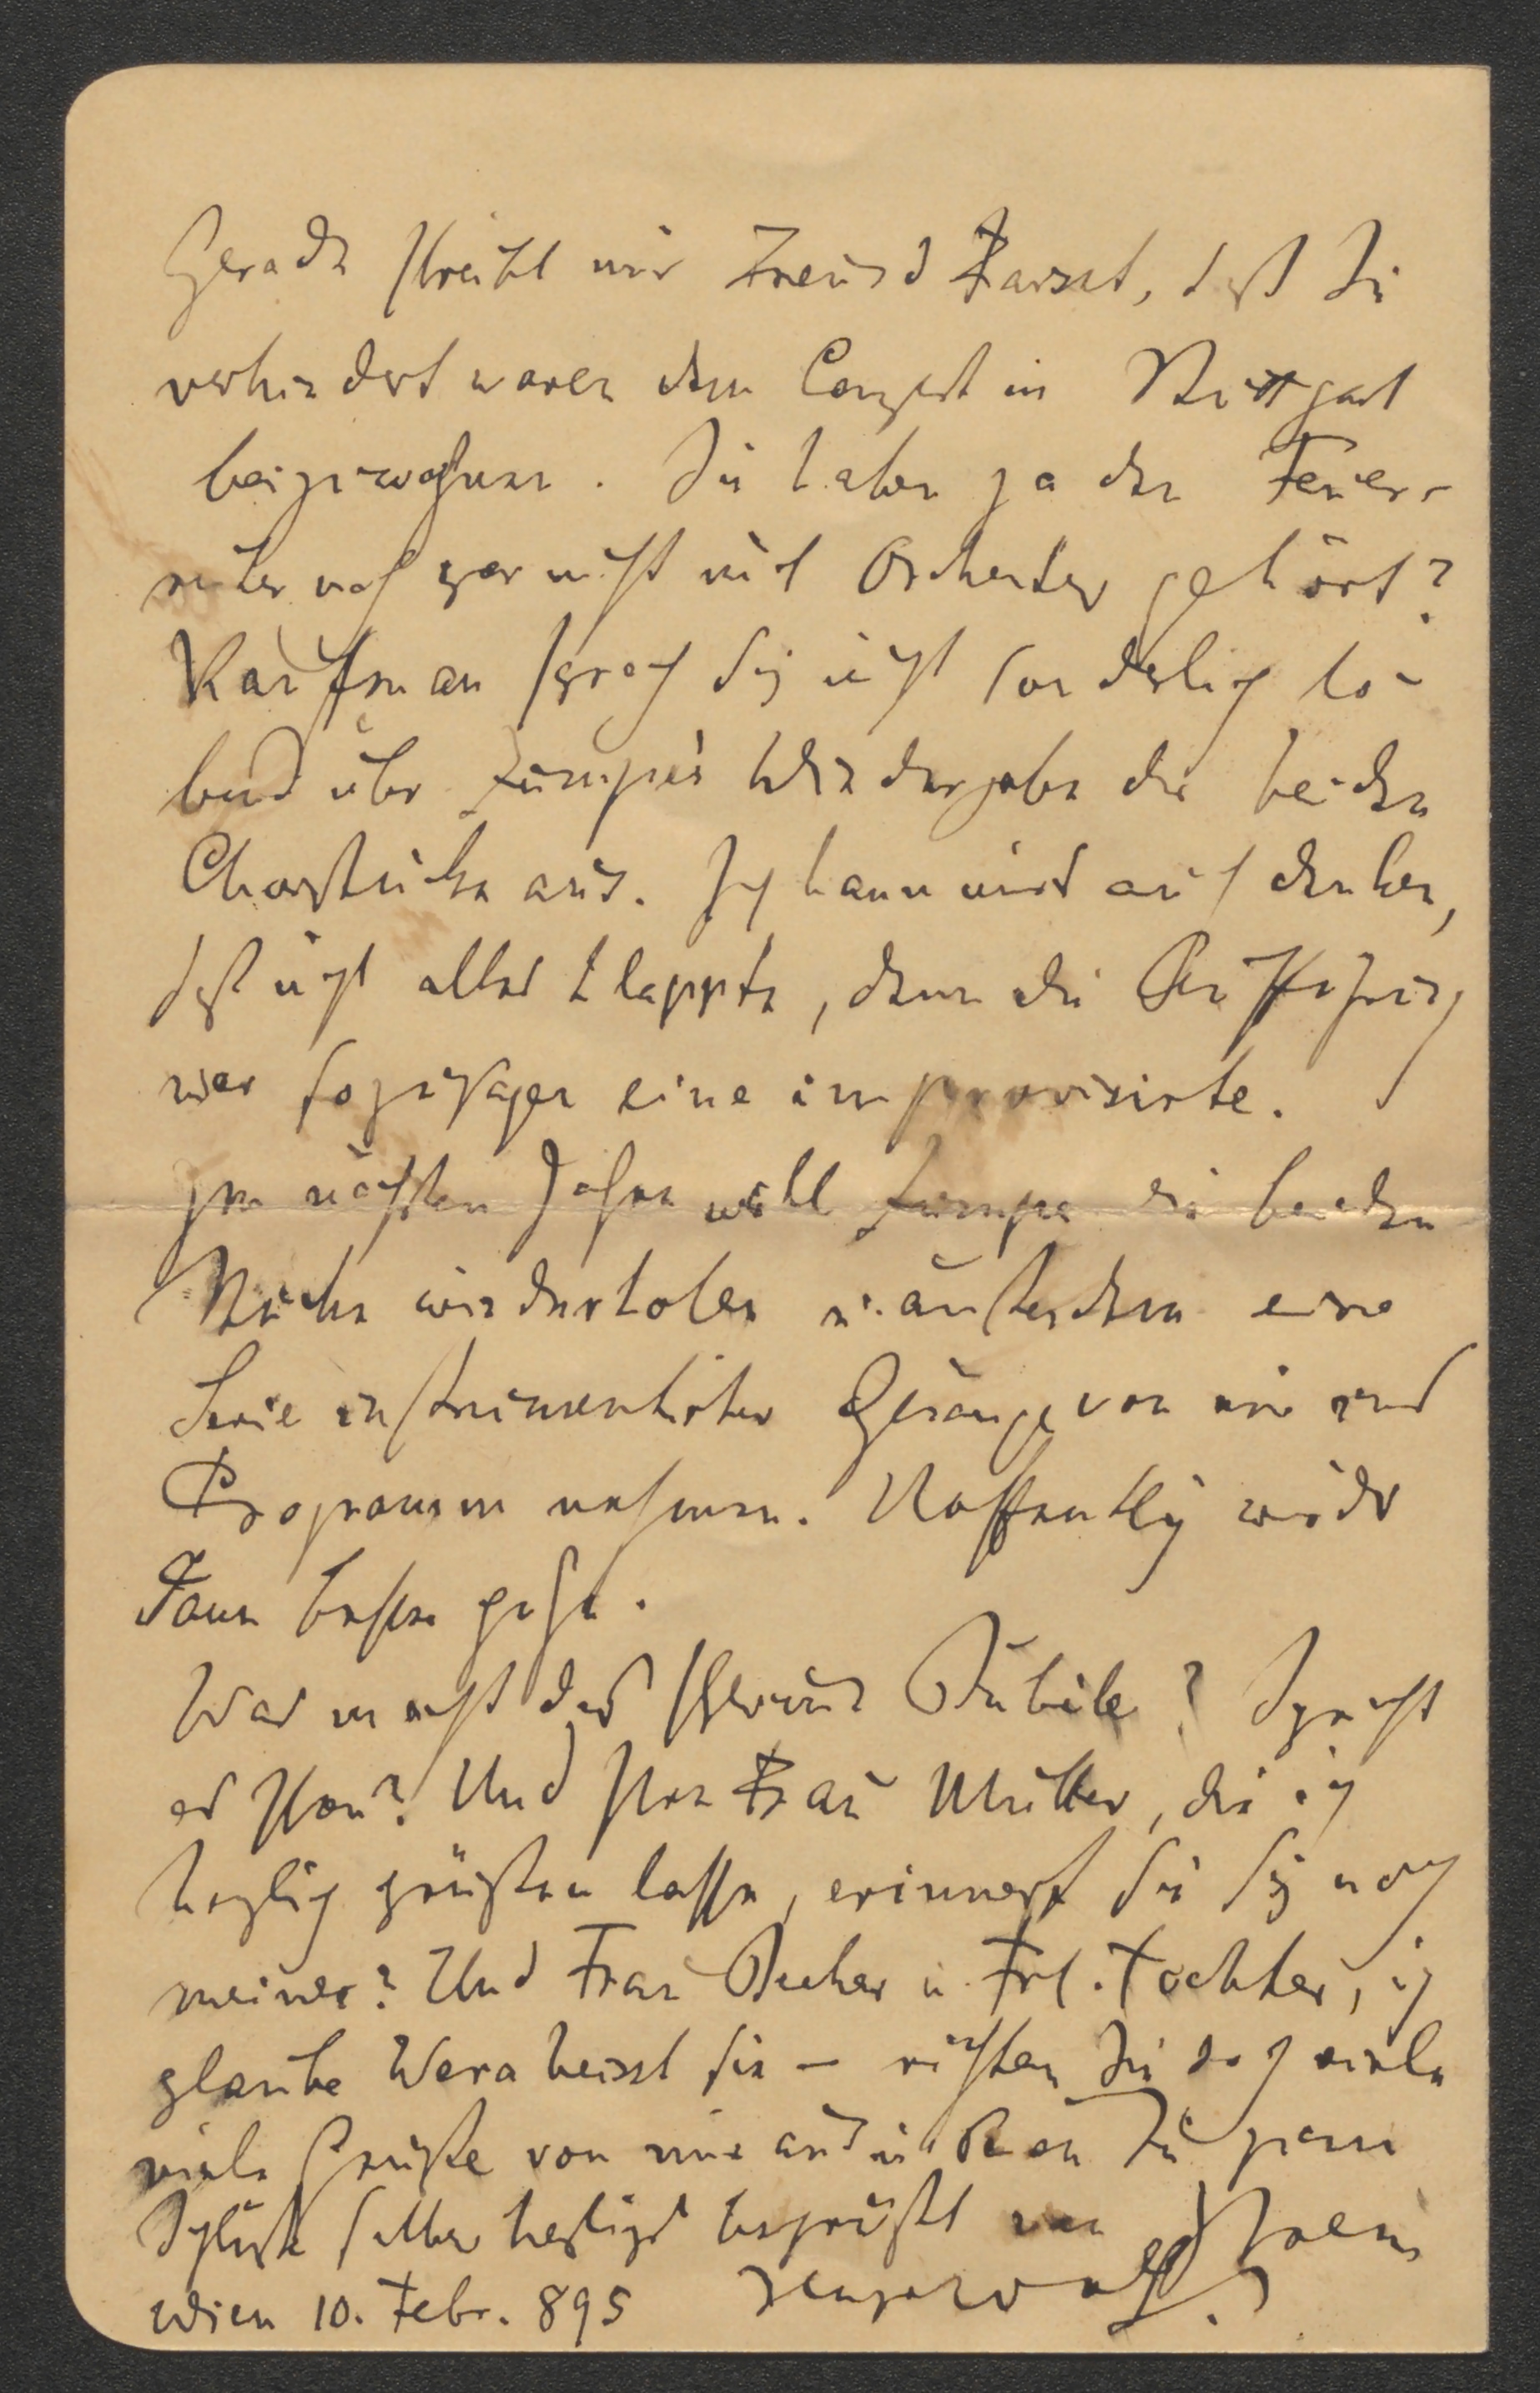 Gerade schreibt mir Freund Faisst, daß Sie
verhindert waren dem Conzert in Stuttgart
beizuwohnen. Sie haben ja den Feuer-
reiter noch gar nicht mit Orchester gehört?
Kauffman sprach sich nicht sonderlich lo-
bend über Zumpe's Wiedergabe der beiden
Chorstücke aus. Ich kann mirs auch denken,
daß nicht alles klappte, denn die Aufführung
war sozusagen eine improvisirte.
Im nächsten Jahre will Zumpe die beiden
Stücke wiederholen u. außerdem eine
Serie instrumentirter Gesänge von mir ins
Programm nehmen. Hoffentlich wirds
dann besser gehen.
Was macht das Bübile? Spricht
es schon? Und Ihre Frau Mutter, die ich
herzlich grüßen lasse, erinnert sie sich noch
meiner? Und Frau Becher u. Frl. Tochter, ich
glaube Wera heisst sie — richten Sie doch viele
viele Grüße von mir aus u.
selber herzlichst begrüßt von Ihrem
Hugo Wolf.
Wien 10. Febr. 895